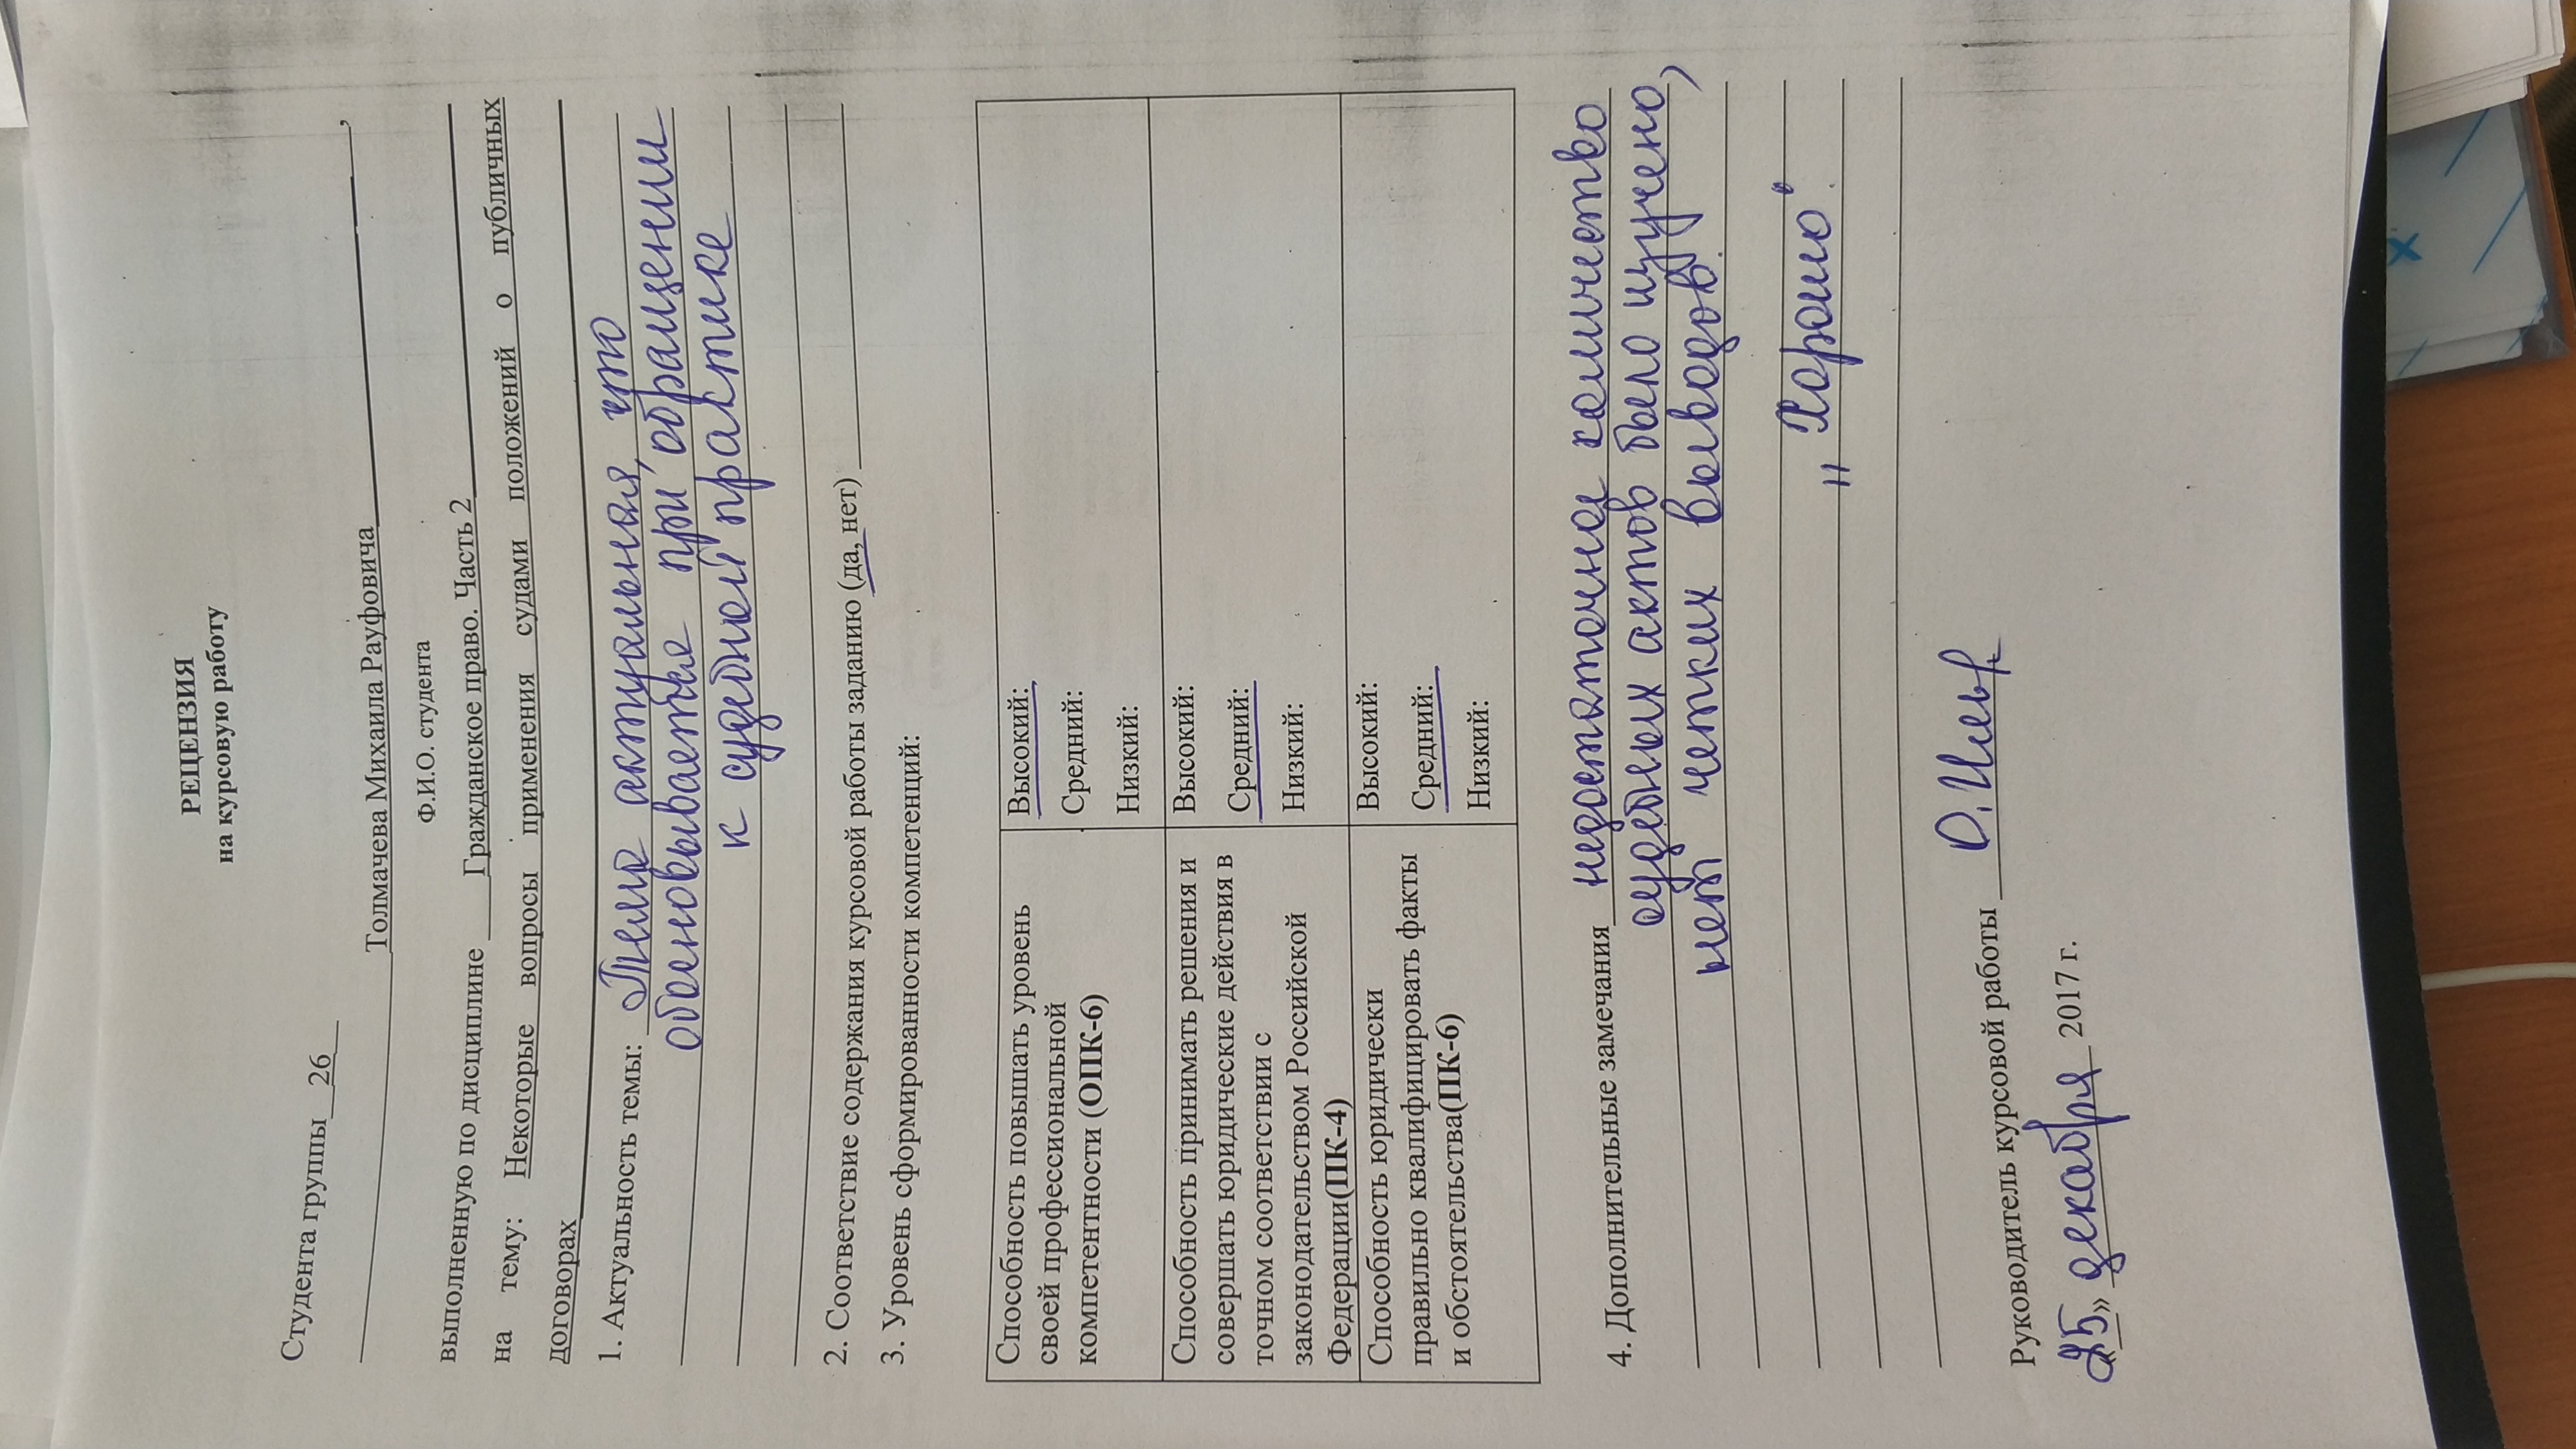 РЕЦЕНЗИЯ
на курсовую работу
Студента группы 26
Толмачева Михаила Рауфовича,
Ф.И.О. студента
выполненную по дисциплине Гражданское право. Часть 2
на тему: Некоторые вопросы применения судами положений о публичных
договорах
1. Актуальность темы: Тема актуальная, что
обосновывается при обращении
к судебной практике
2. Соответствие содержания курсовой работы заданию (да, нет)
3. Уровень сформированности компетенций:
Способность повышать уровень
своей профессиональной
компетентности (ОПК-6)
Высокий:
Средний:
Низкий:
Способность принимать решения и
совершать юридические действия в
точном соответствии с
законодательством Российской
Федерации(ПК-4)
Высокий:
Средний:
Низкий:
Способность юридически
правильно квалифицировать факты
и обстоятельства(ПК-6)
Высокий:
Средний:
Низкий:
4. Дополнительные замечания недостаточное количество
судебных актов было изучено,
нет четких выводов.
„Хорошо".
Руководитель курсовой работы
«25» декабря 2017 г.